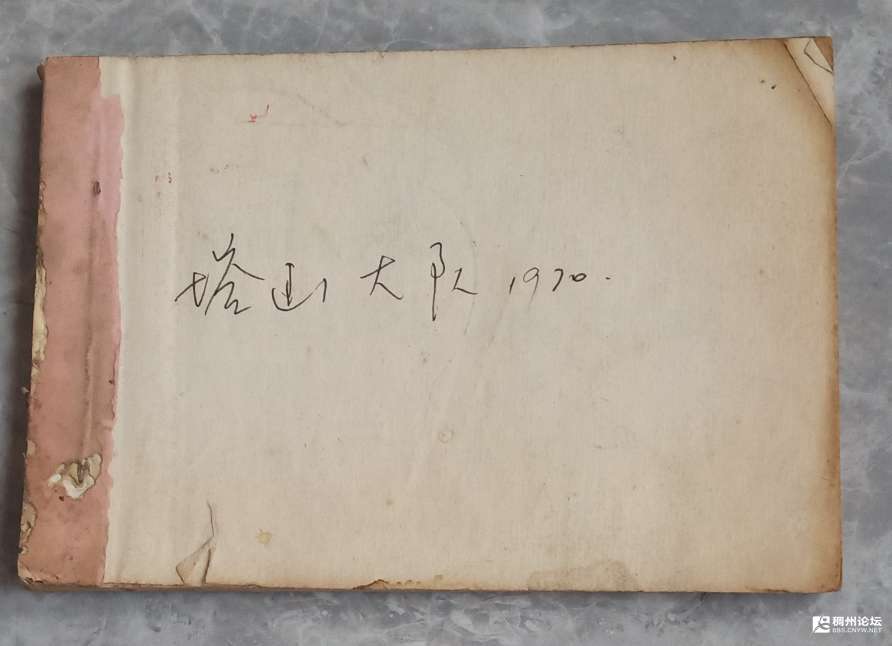 塔山大队 1970.
稠州论坛
BBS.CNYW.NET